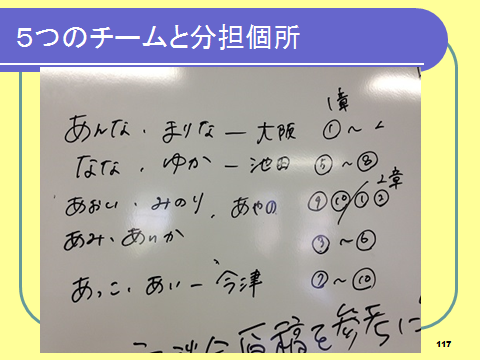 5つのチームと分担個所
1章
あんな・まりな ー 大阪 ①〜
なな・ゆか ー 池田 ⑤〜⑧
2章
あおい・みのり・あやの ⑨⑩/①②
あみ・あいか ③〜⑥
あっこ・あい ー 今津 ⑦〜⑩
原稿を参考に
117